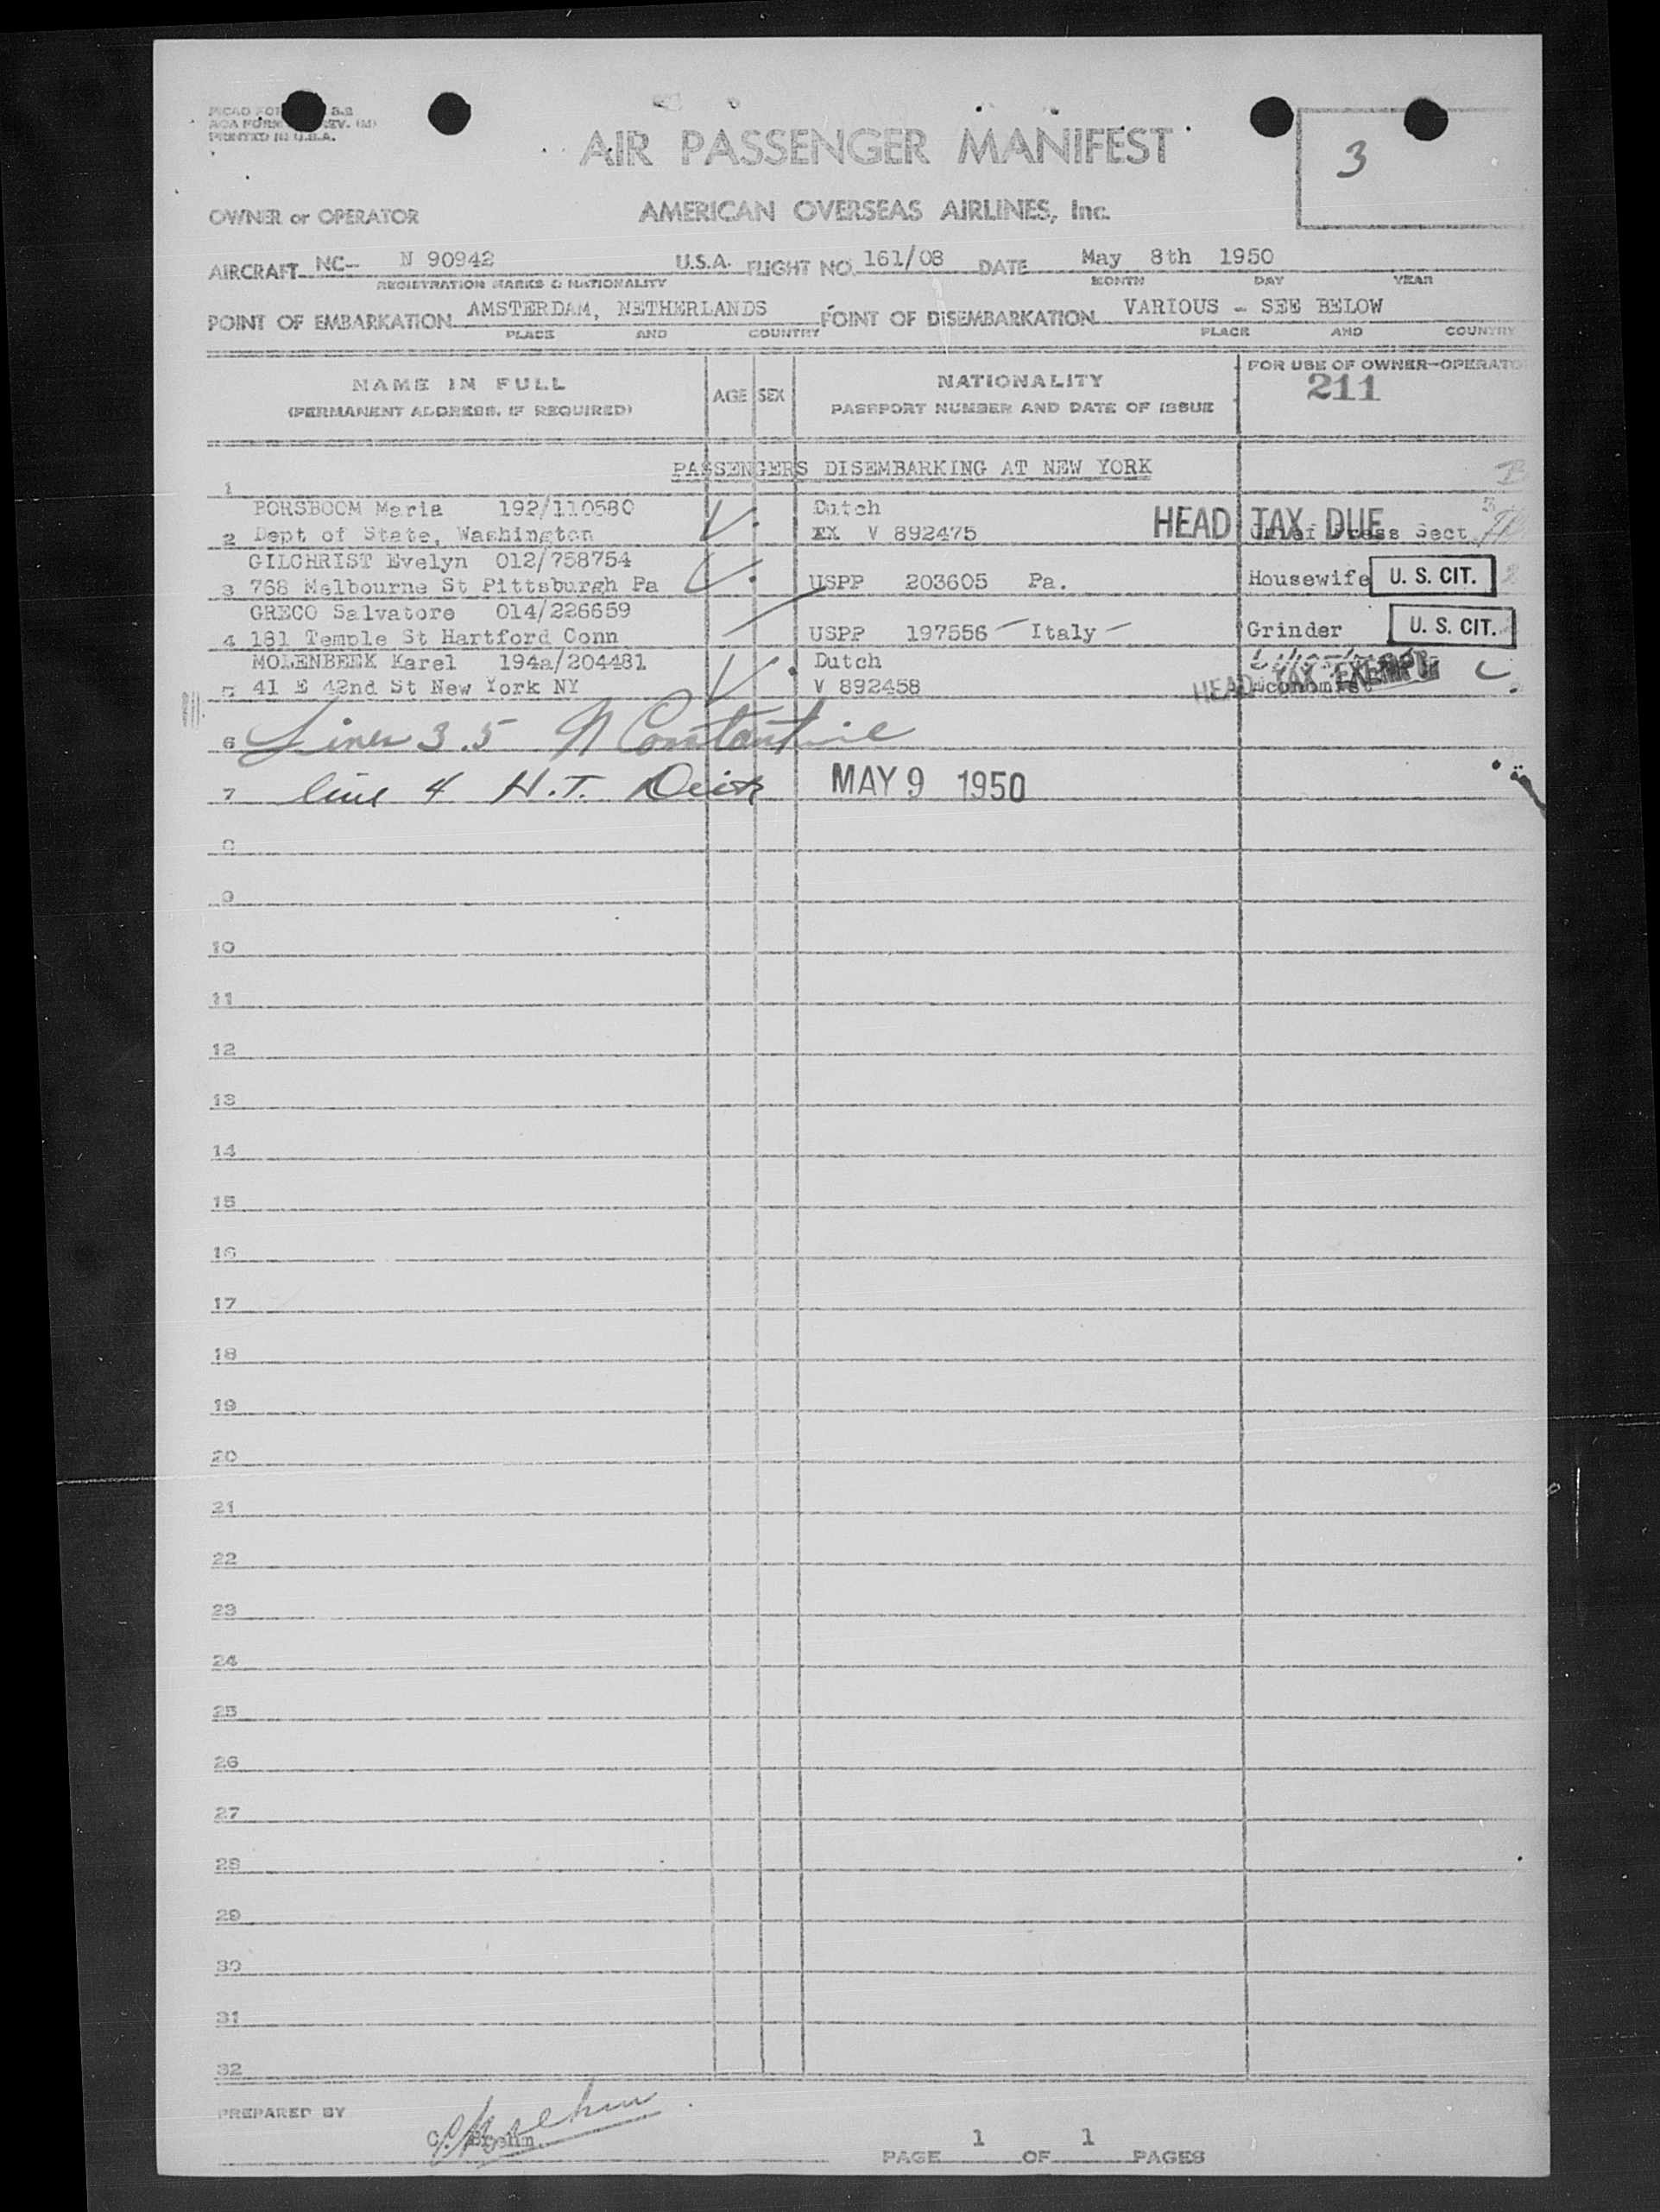 PRINTED IN U.S.A.
AIR PASSENGER MANIFEST
3
OWNER or OPERATOR AMERICAN OVERSEAS AIRLINES, Inc.
AIRCRAFT NC- N 90942 U.S.A. FLIGHT NO. 161/08 DATE May 8th 1950
REGISTRATION MARKS & NATIONALITY MONTH DAY YEAR
POINT OF EMBARKATION AMSTERDAM, NETHERLANDS POINT OF DISEMBARKATION VARIOUS - SEE BELOW
PLACE AND COUNTRY PLACE AND COUNTRY
NAME IN FULL AGE SEX NATIONALITY FOR USE OF OWNER-OPERATO
(PERMANENT ADDRESS, IF REQUIRED) PASSPORT NUMBER AND DATE OF ISSUE 211
PASSENGERS DISEMBARKING AT NEW YORK
1
BORSBOOM Maria 192/110580 Dutch
2 Dept of State, Washington EX V 892475 HEAD TAX DUE Chief Press Sect
GILCHRIST Evelyn 012/758754
3 768 Melbourne St Pittsburgh Pa USPP 203605 Pa. Housewife U. S. CIT.
GRECO Salvatore 014/226659
4 181 Temple St Hartford Conn USPP 197556 - Italy - Grinder U. S. CIT.
MOLENBEEK Karel 194a/204481 Dutch
5 41 E 42nd St New York NY V 892458 HEAD TAX EXEMPT Economist
6 Lines 3.5 N Constantine
7 line 4 H.T. MAY 9 1950
8
9
10
11
12
13
14
15
16
17
18
19
20
21
22
23
24
25
26
27
28
29
30
31
32
PREPARED BY
PAGE 1 OF 1 PAGES